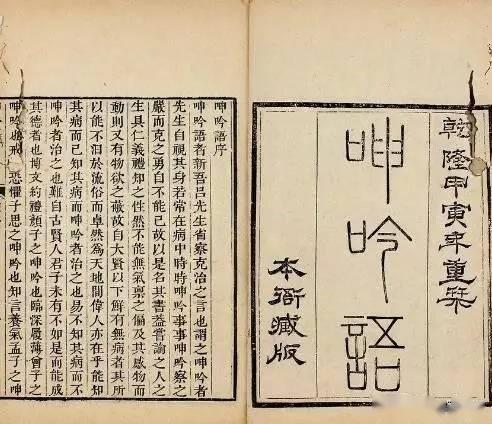 乾隆甲寅年重栞
呻吟語
本衙藏版
呻吟語序
呻吟語者新吾呂先生省察克治之言也謂之呻吟者
先生自視其身若常在病中時時呻吟事事呻吟察之
嚴而克之勇自不能已故以是名其書葢嘗論之人之
生具仁義禮知之性然不能無氣禀之偏及其感物而
動則又有物欲之蔽故自大賢以下鮮有無病者其所
以能不汨於流俗而卓然為天地間偉人亦在乎能知
其病而已知其病而呻吟者治之也易不知其病而不
呻吟者治之也難自古賢人君子未有不如是而能成
其德者也博文約禮顏子之呻吟也臨深履薄曾子之
呻吟也戒恐懼子思之呻吟也知言養氣孟子之呻